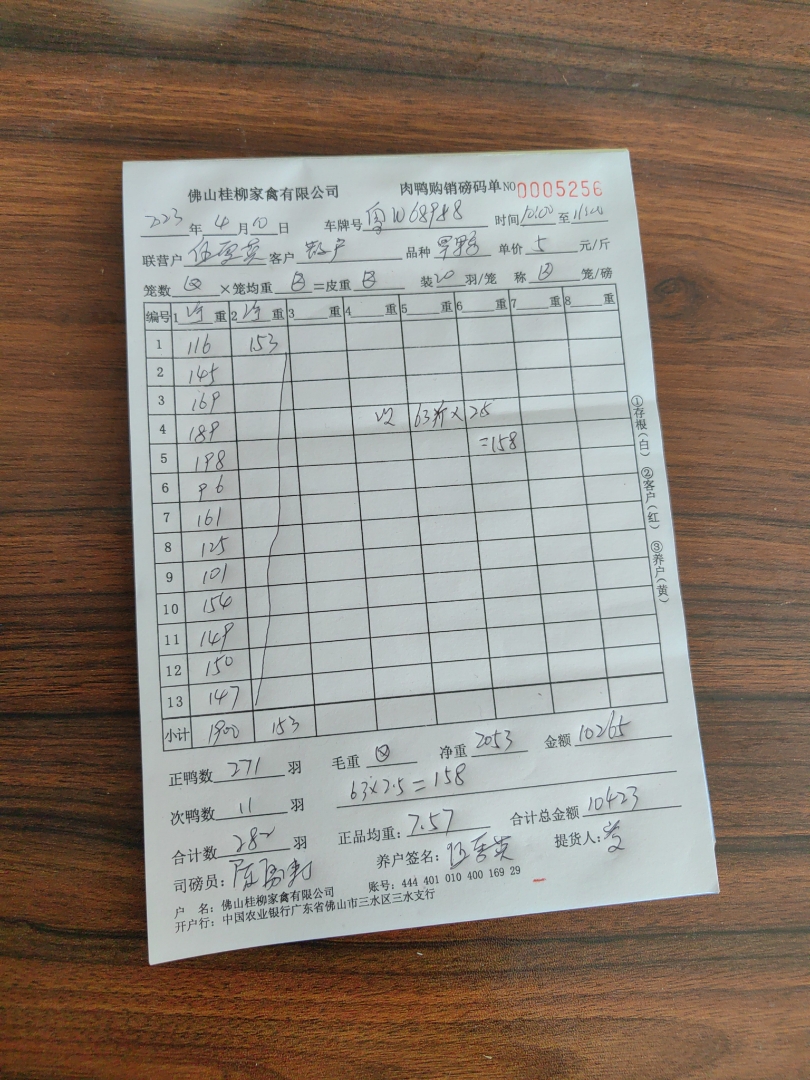 佛山桂柳家禽有限公司 肉鸭购销磅码单 NO 0005256
2023 年 4 月 10 日 车牌号 粤W689 8 时间 10:00 至
联营户 伍 英 客户 散户 品种 单价 5 元/斤
笼数 ×笼均重 =皮重 装 20 羽/笼 称 笼/磅
编号 1 净 重 2 净 重 3 重 4 重 5 重 6 重 7 重 8 重
1 116 153
2 145
3 169
4 189 次 63斤×25
5 198 =158
6 96
7 161
8 125
9 101
10 154
11 149
12 150
13 147
小计 1900 153
正鸭数 271 羽 毛重 净重 2053 金额 10265
次鸭数 11 羽 63×2.5=158
合计数 282 羽 正品均重: 7.57 合计总金额 10423
司磅员: 养户签名: 伍 英 提货人:
户 名: 佛山桂柳家禽有限公司 账号: 444 401 010 400 169 29
开户行: 中国农业银行广东省佛山市三水区三水支行
①存根(白) ②客户(红) ③养户(黄)